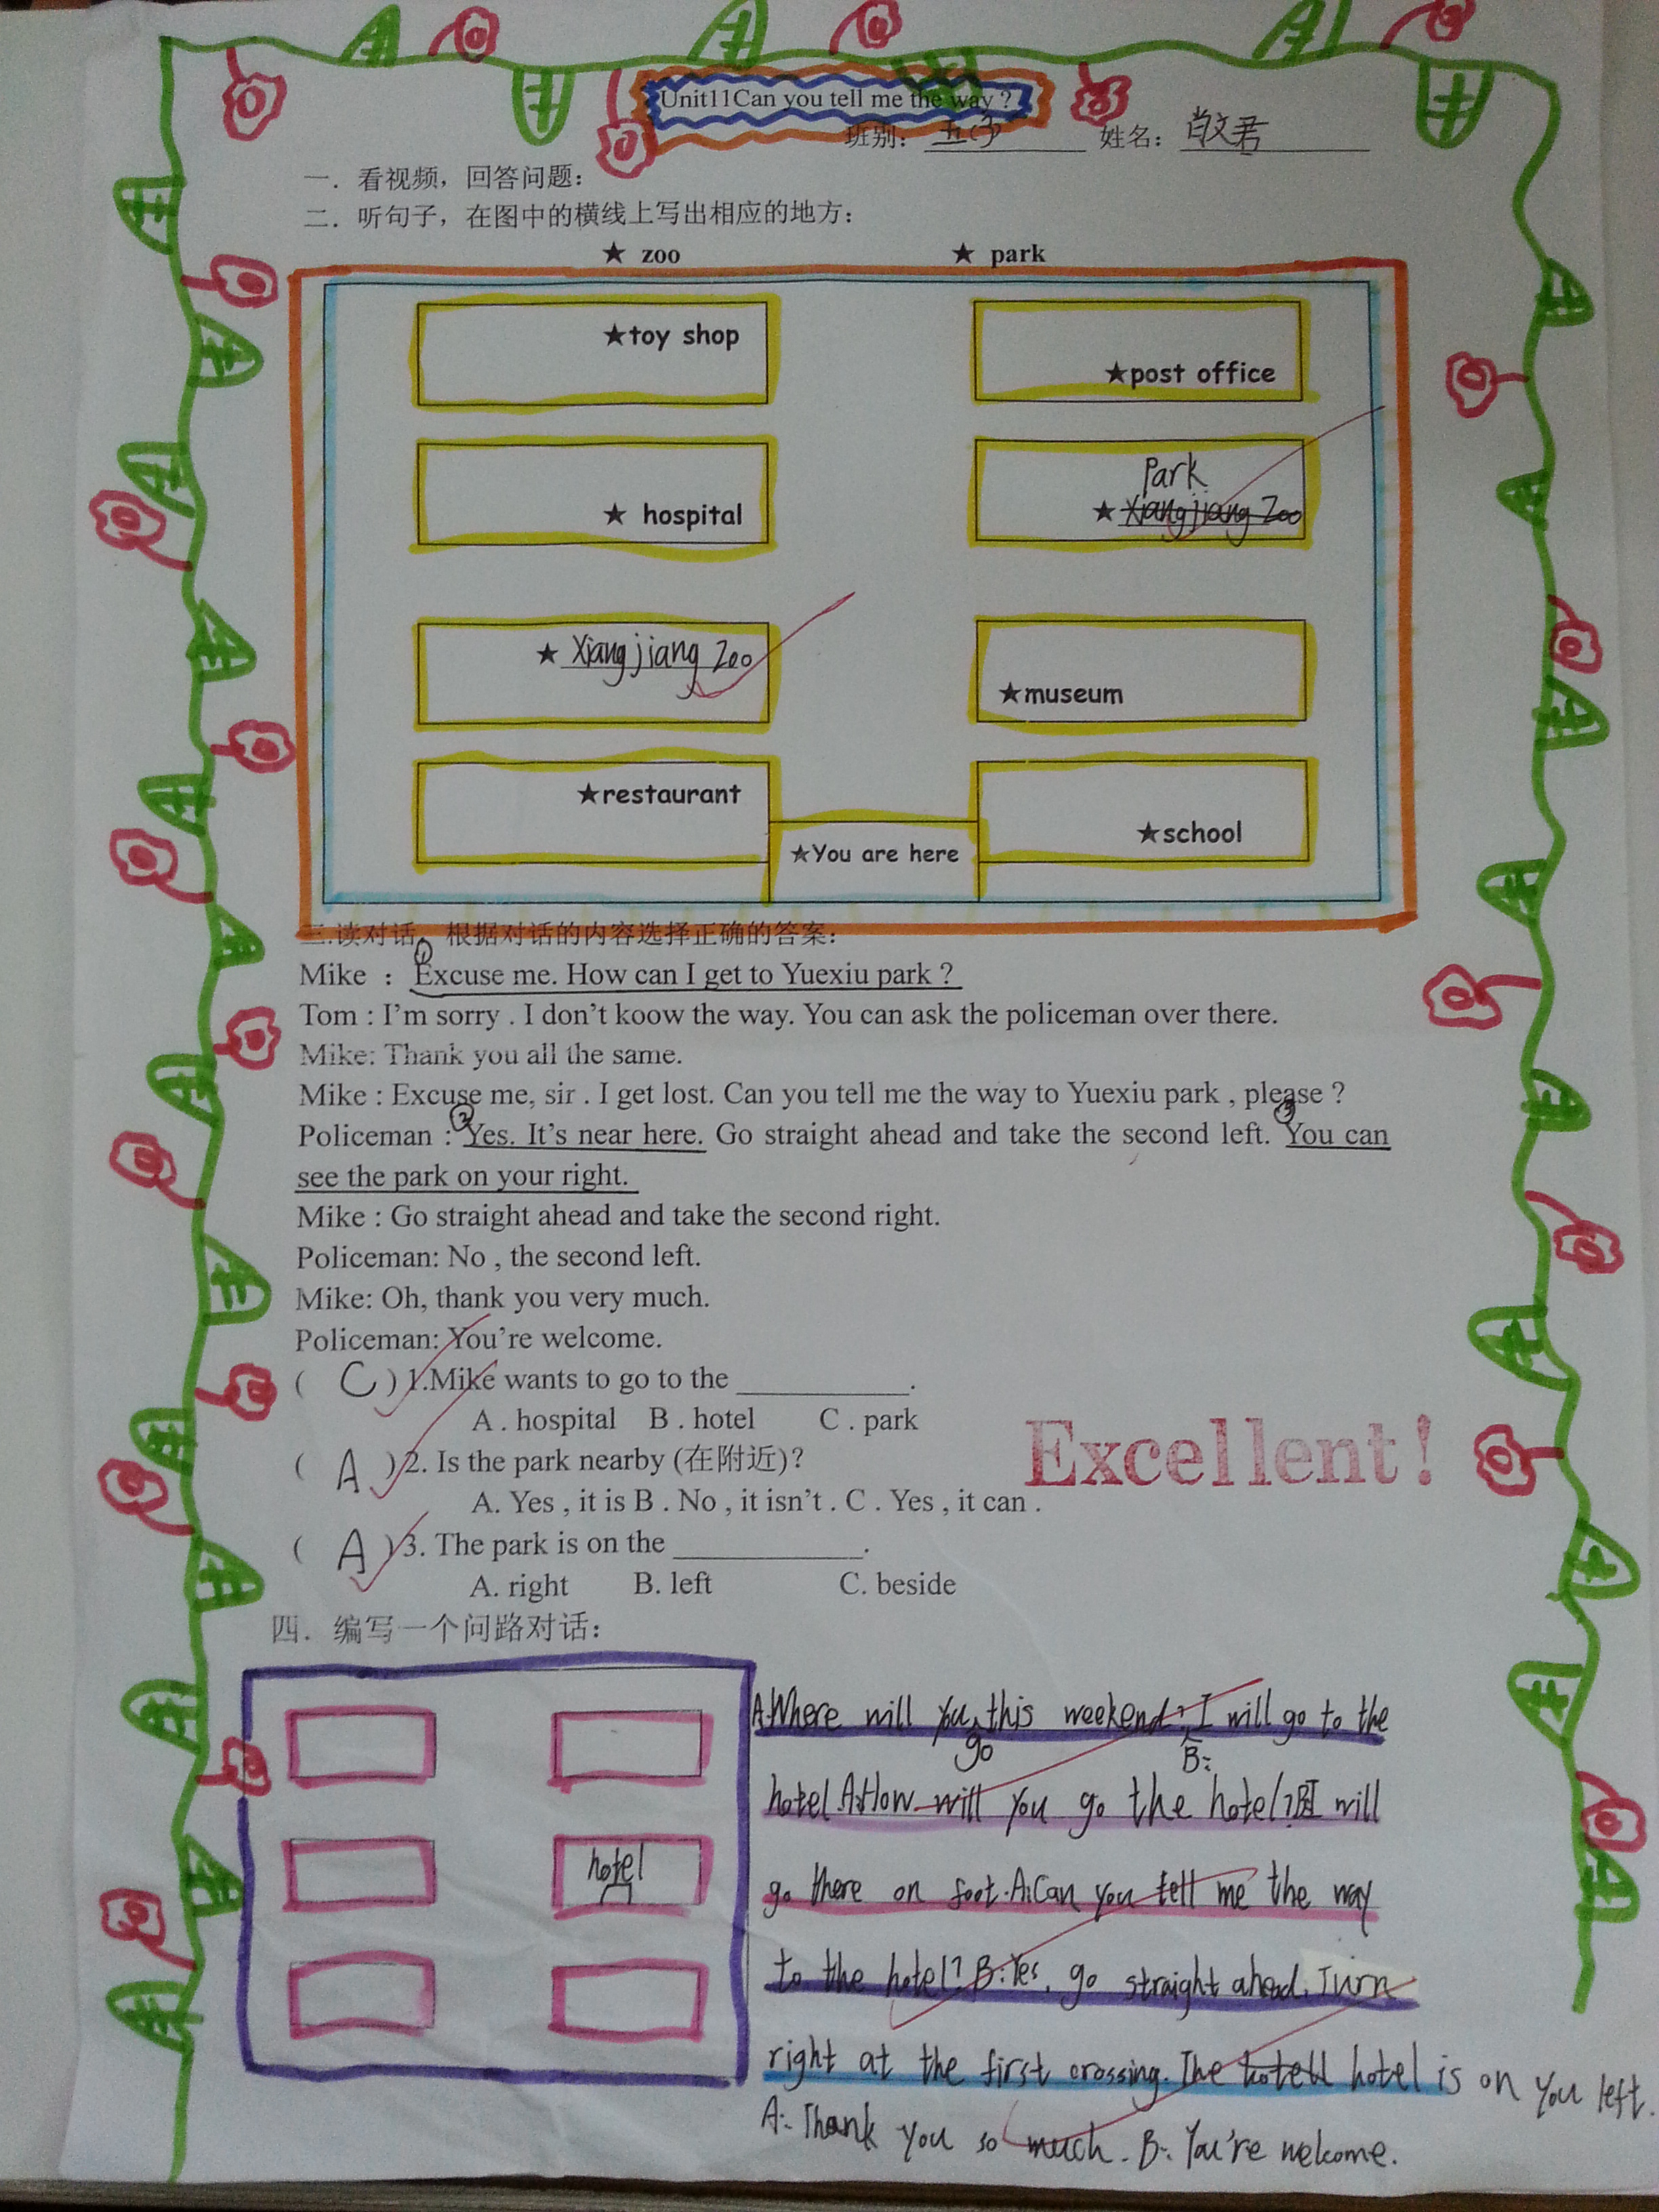 Unit11Can you tell me the way ?
班别： 五(3) 姓名：
一．看视频，回答问题：
二．听句子，在图中的横线上写出相应的地方：
★ zoo ★ park
★toy shop ★post office
Park
★ hospital ★ Xiangjiang Zoo
★ Xiangjiang Zoo ★museum
★restaurant ★school
★You are here
三.读对话，根据对话的内容选择正确的答案：
Mike : ①Excuse me. How can I get to Yuexiu park ?
Tom : I'm sorry . I don't koow the way. You can ask the policeman over there.
Mike: Thank you all the same.
Mike : Excuse me, sir . I get lost. Can you tell me the way to Yuexiu park , please ?
Policeman : ②Yes. It's near here. Go straight ahead and take the second left. ③You can
see the park on your right.
Mike : Go straight ahead and take the second right.
Policeman: No , the second left.
Mike: Oh, thank you very much.
Policeman: You're welcome.
( C ) 1.Mike wants to go to the ___________.
A . hospital B . hotel C . park
( A ) 2. Is the park nearby (在附近)?
A. Yes , it is B . No , it isn't . C . Yes , it can .
Excellent!
( A ) 3. The park is on the ____________.
A. right B. left C. beside
四．编写一个问路对话：
A:Where will you go this weekend? B: I will go to the
hotel A:How will you go the hotel? I will
hotel
go there on foot. A:Can you tell me the way
to the hotel? B:Yes, go straight ahead. Turn
right at the first crossing. The hotell hotel is on you left.
A: Thank you so much. B: You're welcome.